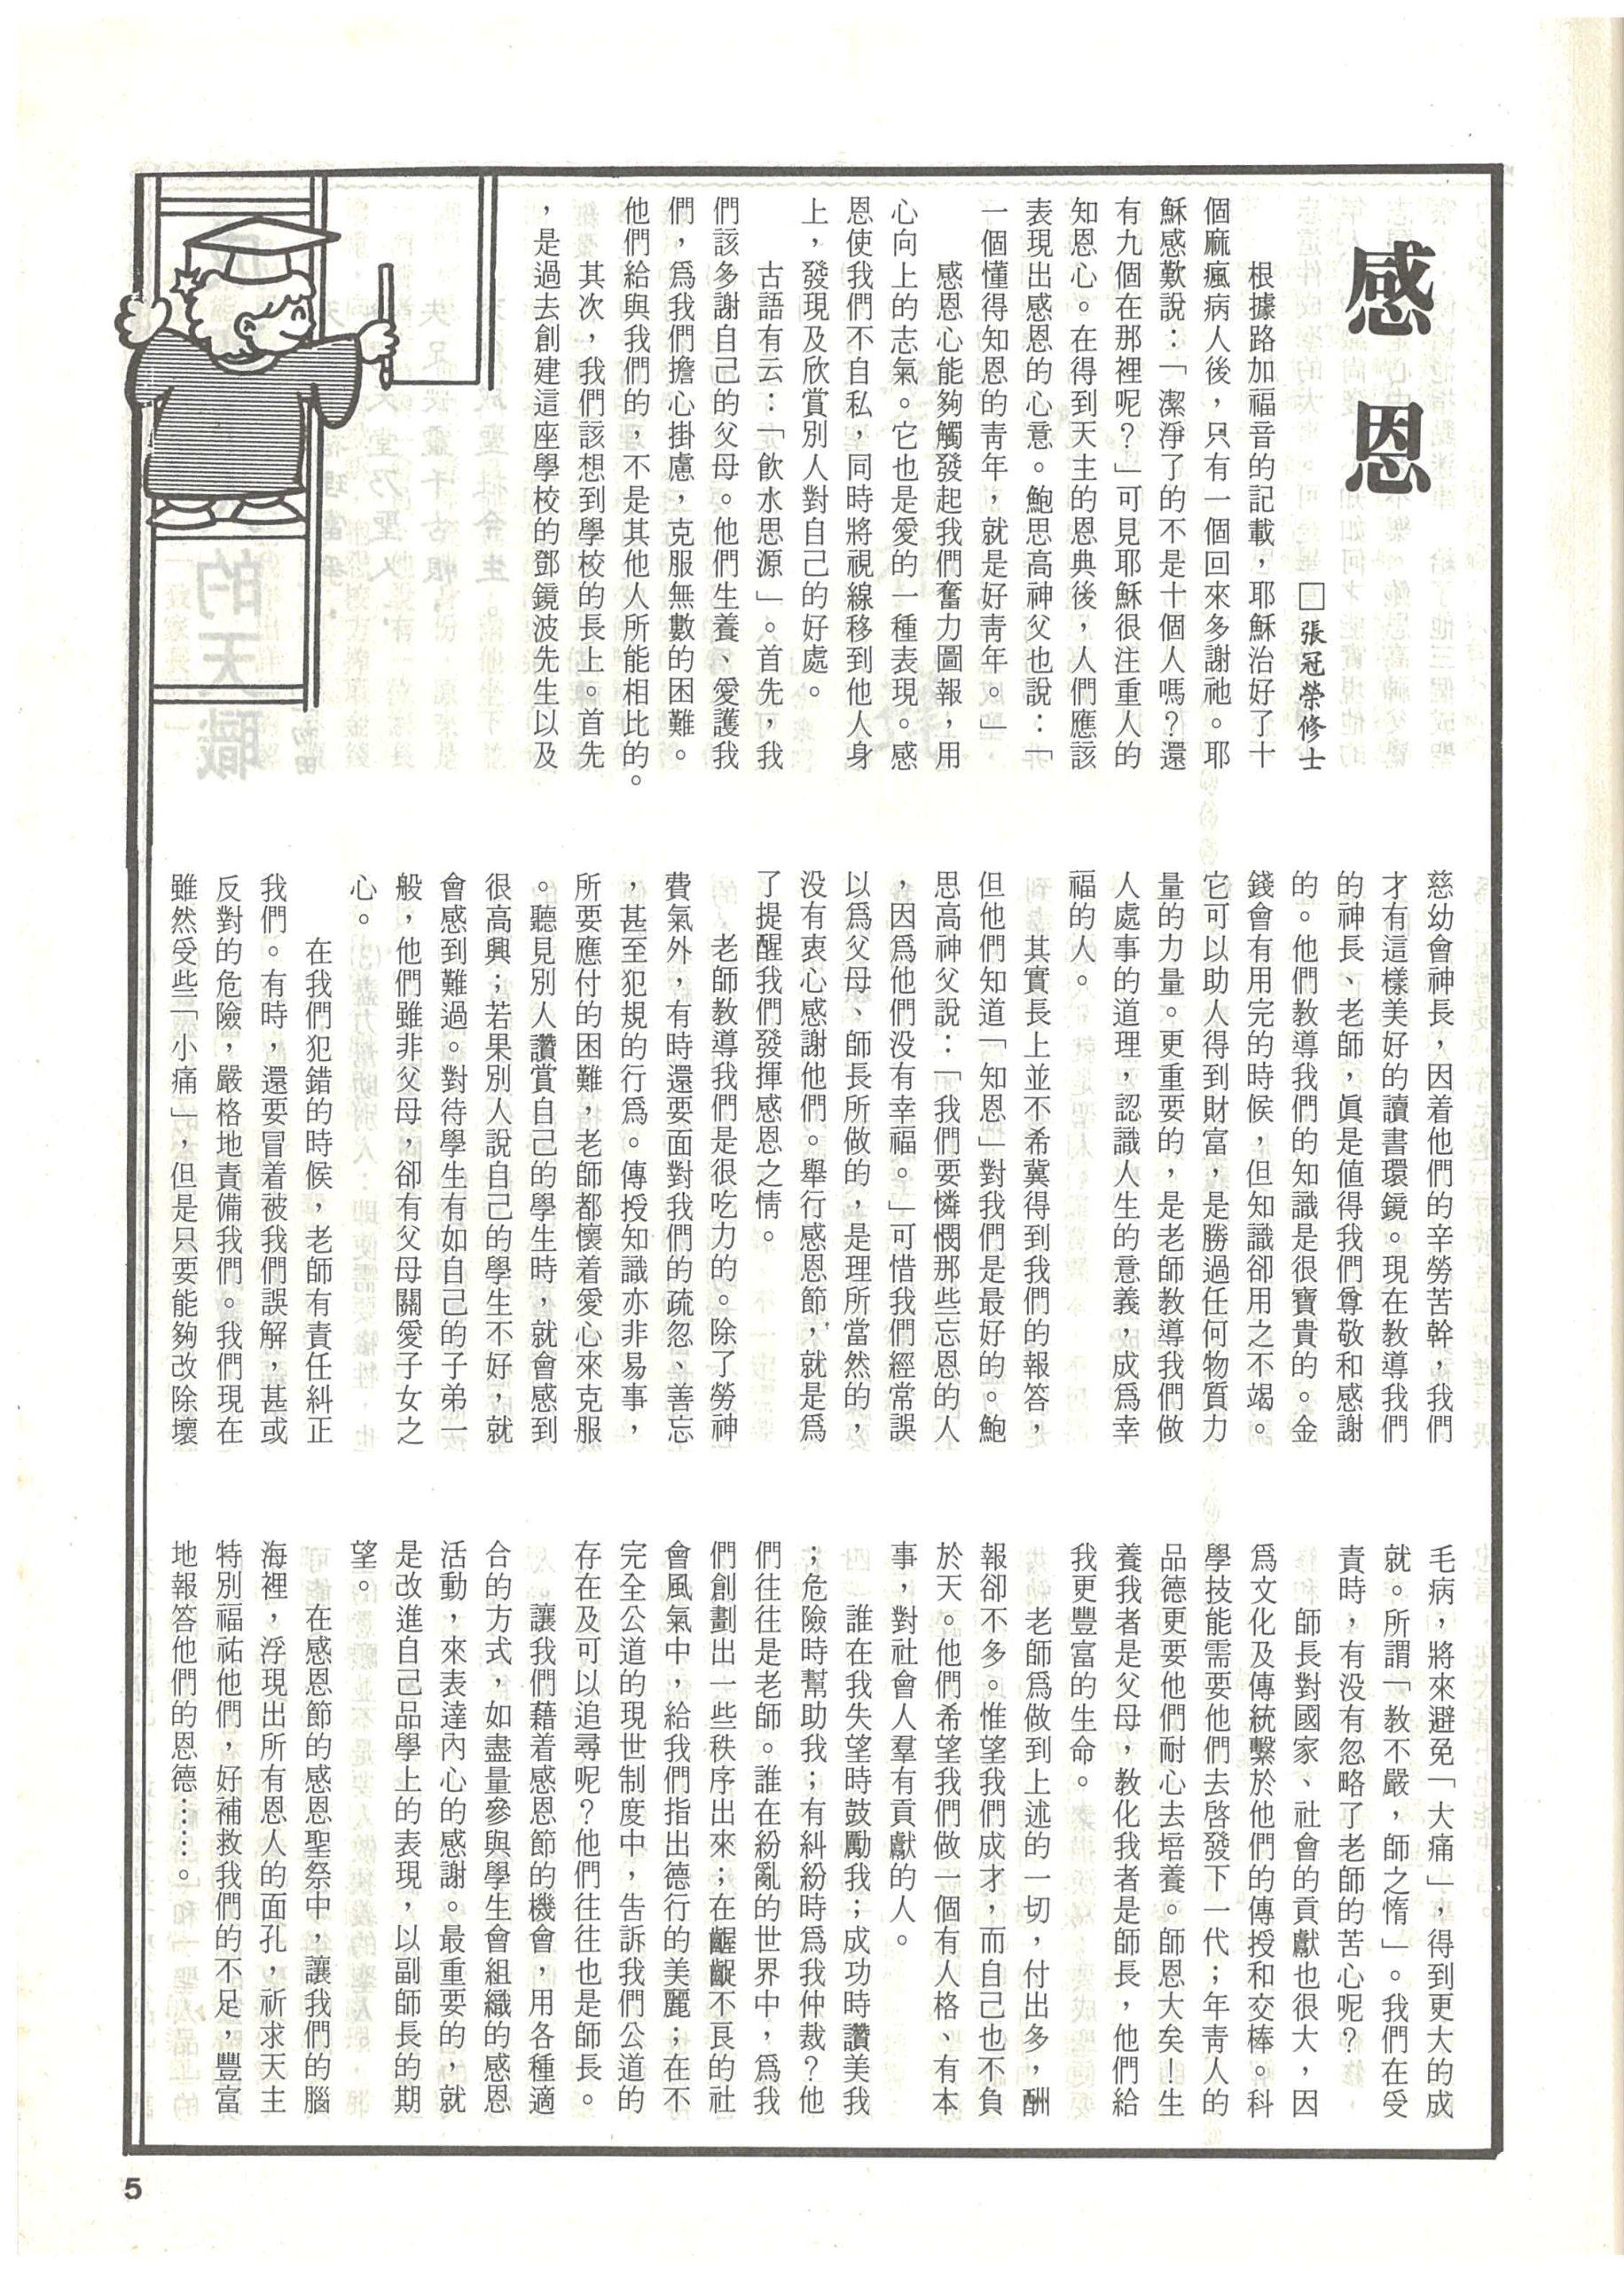 感恩
□張冠榮修士
根據路加福音的記載，耶穌治好了十
個麻瘋病人後，只有一個回來多謝祂。耶
穌感歎說：「潔淨了的不是十個人嗎？還
有九個在那裡呢？」可見耶穌很注重人的
知恩心。在得到天主的恩典後，人們應該
表現出感恩的心意。鮑思高神父也說：「
一個懂得知恩的青年，就是好青年。」
感恩心能夠觸發起我們奮力圖報，用
心向上的志氣。它也是愛的一種表現。感
恩使我們不自私，同時將視線移到他人身
上，發現及欣賞別人對自己的好處。
古語有云：「飲水思源」。首先，我
們該多謝自己的父母。他們生養、愛護我
們，爲我們擔心掛慮，克服無數的困難。
他們給與我們的，不是其他人所能相比的。
其次，我們該想到學校的長上。首先
，是過去創建這座學校的鄧鏡波先生以及
慈幼會神長，因着他們的辛勞苦幹，我們
才有這樣美好的讀書環鏡。現在教導我們
的神長、老師，眞是值得我們尊敬和感謝
的。他們教導我們的知識是很寶貴的。金
錢會有用完的時候，但知識卻用之不竭。
它可以助人得到財富，是勝過任何物質力
量的力量。更重要的，是老師教導我們做
人處事的道理，認識人生的意義，成爲幸
福的人。
其實長上並不希冀得到我們的報答，
但他們知道「知恩」對我們是最好的。鮑
思高神父說：「我們要憐憫那些忘恩的人
，因爲他們没有幸福。」可惜我們經常誤
以爲父母、師長所做的，是理所當然的，
没有衷心感謝他們。舉行感恩節，就是爲
了提醒我們發揮感恩之情。
老師教導我們是很吃力的。除了勞神
費氣外，有時還要面對我們的疏忽、善忘
，甚至犯規的行爲。傳授知識亦非易事，
所要應付的困難，老師都懷着愛心來克服
。聽見別人讚賞自己的學生時，就會感到
很高興；若果別人說自己的學生不好，就
會感到難過。對待學生有如自己的子弟一
般，他們雖非父母，卻有父母關愛子女之
心。
在我們犯錯的時候，老師有責任糾正
我們。有時，還要冒着被我們誤解，甚或
反對的危險，嚴格地責備我們。我們現在
雖然受些「小痛」，但是只要能夠改除壞
毛病，將來避免「大痛」，得到更大的成
就。所謂「教不嚴，師之惰」。我們在受
責時，有没有忽略了老師的苦心呢？
師長對國家、社會的貢獻也很大，因
爲文化及傳統繫於他們的傳授和交棒。科
學技能需要他們去啓發下一代；年青人的
品德更要他們耐心去培養。師恩大矣！生
養我者是父母，教化我者是師長，他們給
我更豐富的生命。
老師爲做到上述的一切，付出多，酬
報卻不多。惟望我們成才，而自己也不負
於天。他們希望我們做一個有人格、有本
事，對社會人羣有貢獻的人。
誰在我失望時鼓勵我；成功時讚美我
；危險時幫助我；有糾紛時爲我仲裁？他
們往往是老師。誰在紛亂的世界中，爲我
們創劃出一些秩序出來；在齷齪不良的社
會風氣中，給我們指出德行的美麗；在不
完全公道的現世制度中，告訴我們公道的
存在及可以追尋呢？他們往往也是師長。
讓我們藉着感恩節的機會，用各種適
合的方式，如盡量參與學生會組織的感恩
活動，來表達內心的感謝。最重要的，就
是改進自己品學上的表現，以副師長的期
望。
在感恩節的感恩聖祭中，讓我們的腦
海裡，浮現出所有恩人的面孔，祈求天主
特別福祐他們，好補救我們的不足，豐富
地報答他們的恩德……。
5